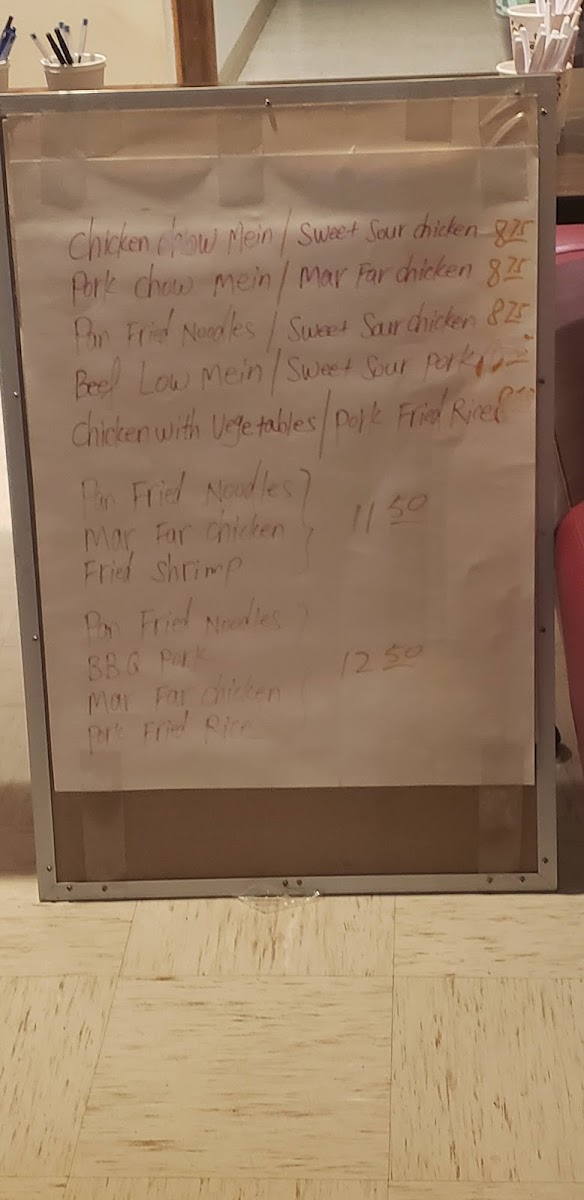 Chicken chow Mein / Sweet Sour chicken 8 75
Pork chow mein / Mar Far chicken 8 75
Pan Fried Noodles / Sweet Sour chicken 8 75
Beef Low Mein / Sweet Sour Pork
Chicken with Vegetables / Pork Fried Rice
Pan Fried Noodles
Mar Far chicken 11 50
Fried Shrimp
Pan Fried Noodles
BBQ Pork 12 50
Mar Far chicken
Pork Fried Rice